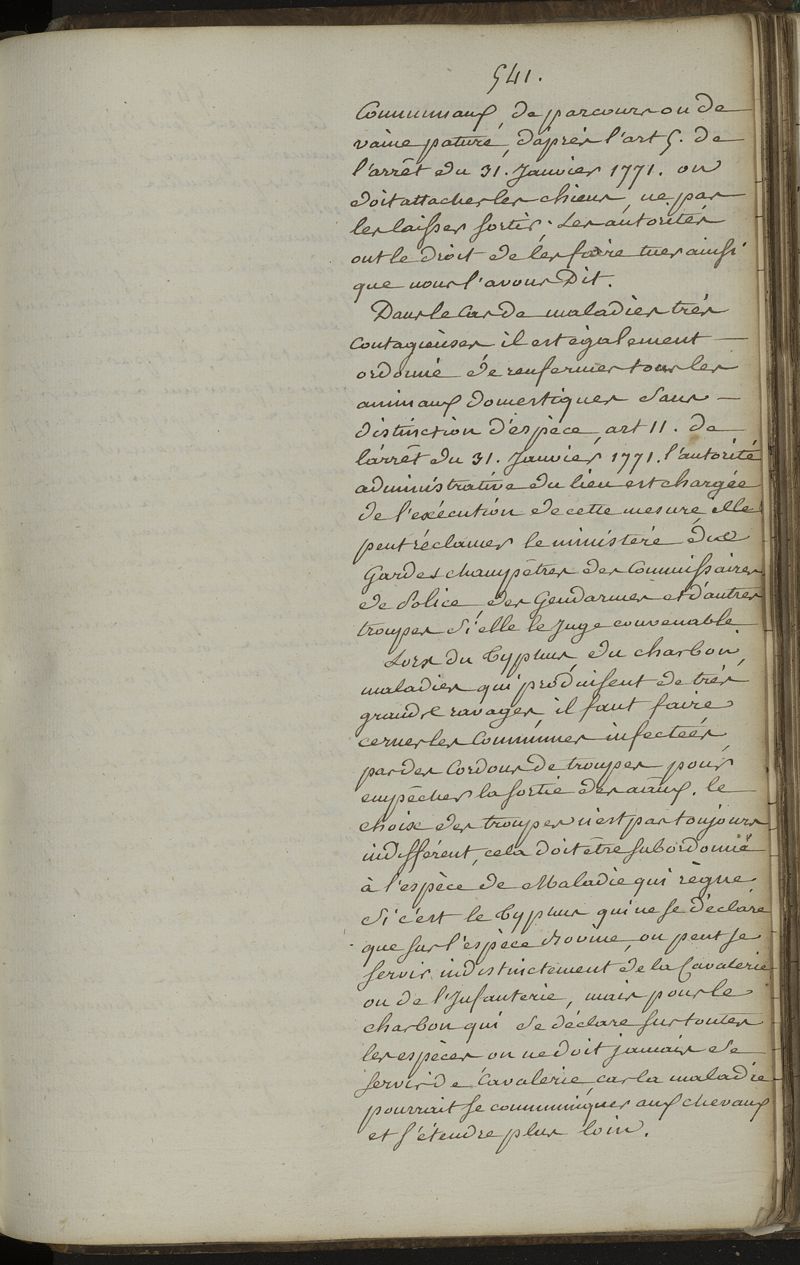 541.
Communaux, de parcours ou de
vaine pature, d'aprés l'art 5. de
l'arrêt du 31. Janvier 1771. on
doit attacher les chiens, ne pas
les laisser sortir. Les autorités
ont le droit de les faire tuer ainssi
que nous l'avons Dit.
Dans le Cas de maladies trés
Contagieuses il est également
ordonné de renfermer tous les
animaux domestiques sans
distinction d'espèce, art 11. de
l'arrêt du 31. Janvier 1771. l'autorité
administrative du lieu est chargée
de l'exécution de cette mesure, elle
peut réclamer le ministère des
Gardes champêtres des Commissaires
de Police des Gendarmes et d'autres
troupes si elle le Juge convenable
Lors du Typhus, du charbon,
maladies qui produisent de trés
grands ravages, il faut faire
cerner les Communes infectées
par des Cordons de troupes pour
empêcher la sortie des aâux. le
choix des troupes n'est pas toujours
indifférent, cela doit être subordonné
à l'espèce de Maladie qui règne.
Si c'est le Typhus qui ne se déclare
que sur l'espèce Bovine, on peut se
servir indistinctement de la Cavalerie
ou de l'Infanterie, mais pour le
charbon qui se déclare sur toutes
les espèces on ne doit jamais se
servir de Cavalerie, car la maladie
pourrait se communiquer aux chevaux
et s'étendre plus loin.